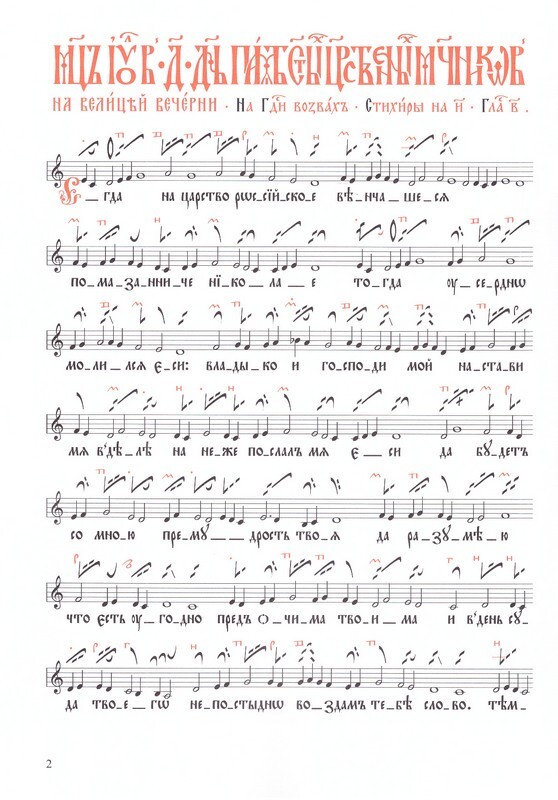 МЦ҇Ъ І҆ꙋ́л В҃. Д҃. ДН҃Ь ПА́МѦТЬ СТ҃Ы́ХЪ ЦРС҇ТВЕННЫХЪ МЧ҃НИКѠВЪ
НА ВЕЛИ́ЦѢЙ ВЕЧЕ́РНИ . На Гдⷭ҇и воззва́хъ . Стихи́ры на и҃ . Гла́съ в҃ .
Е_гда на царство рѡссі́й_ско_е вѣ_нча_ше_сѧ
по_ма_за_нни_че нїко_ла_е то_гда оу_се_рднѡ
мо_ли_лсѧ е_си: вла_ды_ко и го_спо_ди мой на_ста_ви
мѧ в'дѣ_лѣ на не_же по_слалъ мѧ е_си да бу_детъ
со мно_ю пре_му__дрость тво_ѧ да ра_зу_мѣ_ю
что есть оу_го_дно предъ о_чи_ма тво_и_ма и в'день су_
да тво_е_гѡ не_по_стыднѡ во_здамъ те_бѣ сло_во. тѣм_
2